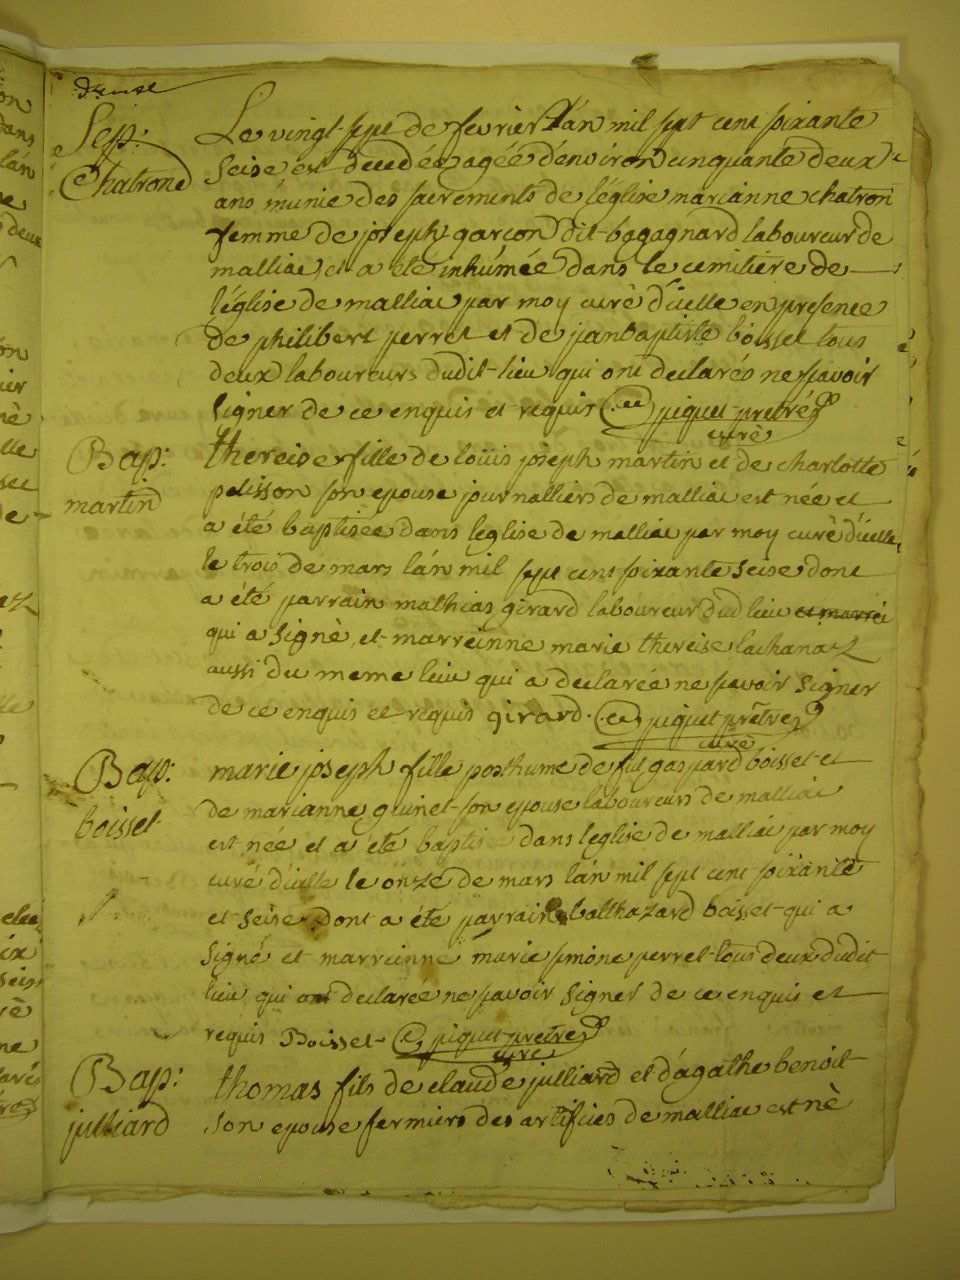 Sep:
Chatrond
Le vingt-sept de fevrier l'an mil sept cent soixante
seise est decedée agée d'environ cinquante deux
ans munie des sacrements de l'église marianne chatron
femme de joseph garçon dit bagagnard laboureur de
malliac et a été inhumée dans le cemitiere de
l'église de malliac par moy curé d'icelle en presence
de philibert perret et de janbaptiste boisset tous
deux laboureurs dudit lieu qui ont declarés ne sçavoir
signer de ce enquis et requis piquet prêtre
curé
Bap:
martin
thereise fille de loüis joseph martin et de charlotte
pelisson son epouse journalliers de malliac est née et
a été baptisée dans leglise de malliac par moy curè d'icelle
le trois de mars lán mil sept cent soixante seise dont
a été parrain mathias girard laboureur dud lieu et marrei
qui a signè, et marreinne marie thereise lachanaz
aussi du meme lieu qui a declarée ne sçavoir signer
de ce enquis et requis girard. piquet prêtre
curè
Bap:
boisset
marie joseph fille posthume de fut gaspard boisset et
de marianne guinet son epouse laboureurs de malliac
est née et a été baptis dans leglise de malliac par moy
curé d'icelle le onze de mars lán mil sept cent soixante
et seise dont a été parrain balthazard boisset qui a
signé et marreinne marie simone perret tous deux dudit
lieu qui declarée ne sçavoir signer de ce enquis et
requis Boisset piquet prêtre
curé
Bap:
julliard
thomas fils de claude julliard et d'agathe benoit
son epouse fermiers des artifices de malliac est nè